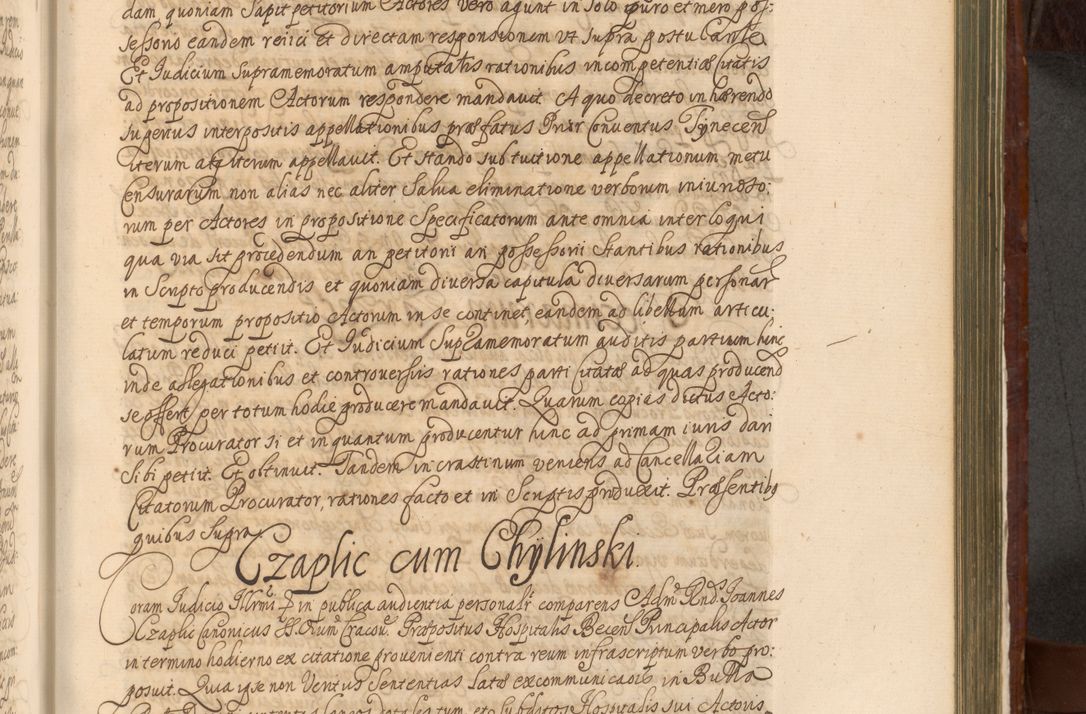 dam quoniam Sapit petitorium Actores vero agunt in solo puro et mero pos-
sessorio eandem reiici et directam responsionem vt supra postulante
Et Iudicium Supramemoratum amputatis rationibus incompetentiæ citatis
ad propositionem Actorum respondere mandauit. A quo decreto inhærendo
superius interpositis appellationibus præfatus Prior Conuentus Tynecen
iterum atq iterum appellauit. Et stando sub tuitione appellationum metu
Censurarum non alias nec aliter Salua eliminatione verborum iniurioso:
rum per Actores in propositione Specificatorum ante omnia interloqui
qua via sit procedendum an petitorii an possessorii stantibus rationibus
in Scripto producendis et quoniam diuersa capitula diuersarum personar
et temporum propositio Actorum in se continet, eandem ad libellum articu:
latum reduci petiit. Et Iudicium Supramemoratum auditis partium hinc
inde allegationibus et controuersiis rationes parti citatæ ad quas producend
se offert, per totum hodie producere mandauit. Quarum copias dictus Acto:
rum Procurator si et in quantum producentur hinc ad primam iuris dari
Sibi petiit. Et obtinuit. Tandem in crastinum veniens ad Cancellariam
Citatorum Procurator, rationes facto et in Scriptis produxit. Præsentibq
quibus Supra.
Czaplic cum Chylinski.
Coram Iudicio Illrmi P in publica audientia personalr comparens Admr Rnd Ioannes
Czaplic Canonicus SS. Oium Cracou. Præpositus Hospitalis Becen Principalis Actor
in termino hodierno ex citatione proueniente contra reum infrascriptum verbo pro:
posuit. Quia ipse non Veritus Sententias latæ excommunicaois in Bulla
et subditos Hospitalis sui Actoris